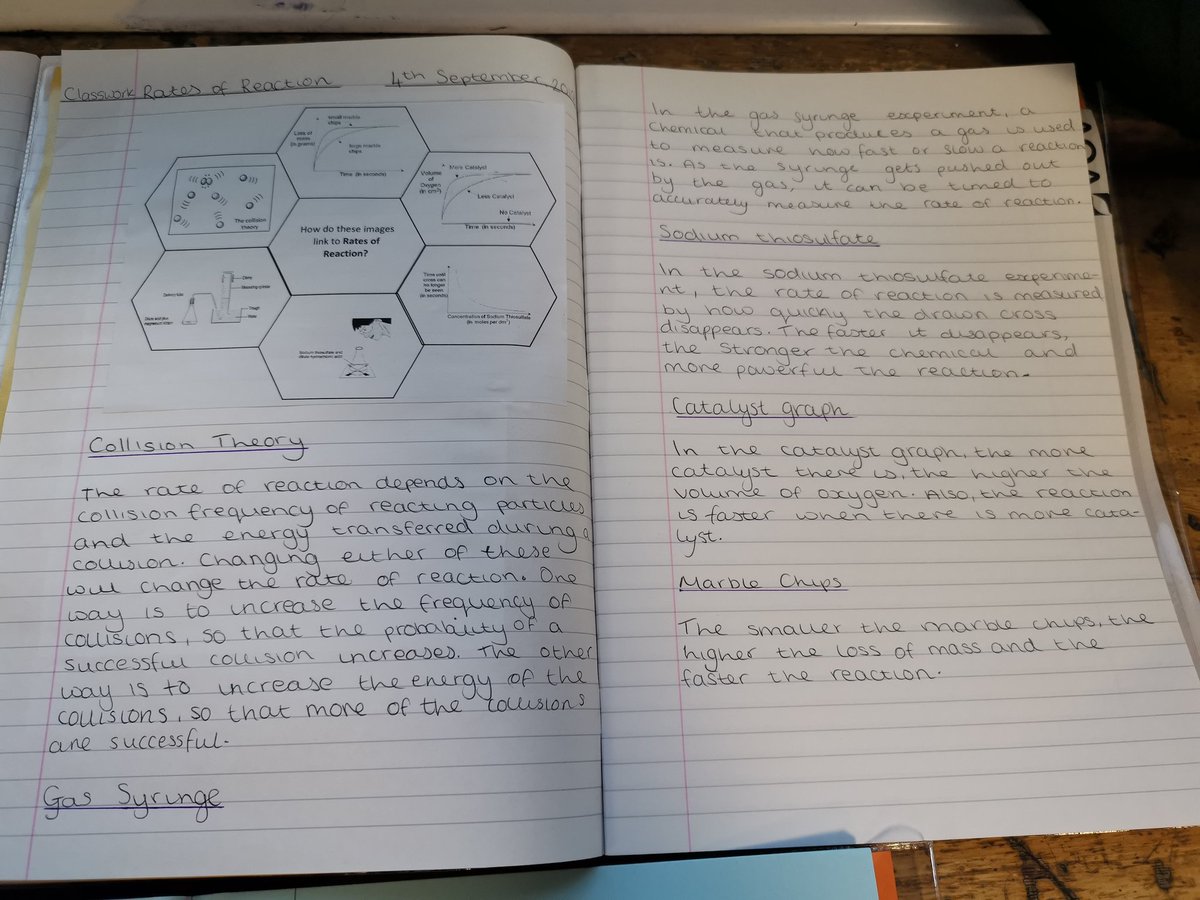 Classwork Rates of Reaction 4th September
small marble
chips
Loss of
mass
(in grams)
large marble
chips
Time (in seconds)
The collision
theory
Volume
of
Oxygen
(in cm³)
More Catalyst
Less Catalyst
No Catalyst
Time (in seconds)
How do these images
link to Rates of
Reaction?
Delivery tube
Measuring cylinder
Trough
Water
Time until
cross can
no longer
be seen
(in seconds)
Concentration of Sodium Thiosulfate
(in moles per dm³)
Sodium thiosulfate and
dilute hydrochloric acid
Collision Theory
The rate of reaction depends on the
collision frequency of reacting particles
and the energy transferred during a
collision. Changing either of these
will change the rate of reaction. One
way is to increase the frequency of
collisions, so that the probability of a
successful collision increases. The other
way is to increase the energy of the
collisions, so that more of the collisions
are successful.
Gas Syringe
In the gas syringe experiment, a
chemical that produces a gas is used
to measure how fast or slow a reaction
is. As the syringe gets pushed out
by the gas, it can be timed to
accurately measure the rate of reaction.
Sodium thiosulfate
In the sodium thiosulfate experime-
nt, the rate of reaction is measured
by how quickly the drawn cross
disappears. The faster it disappears,
the stronger the chemical and
more powerful the reaction.
Catalyst graph
In the catalyst graph, the more
catalyst there is, the higher the
volume of oxygen. Also, the reaction
is faster when there is more cata-
lyst.
Marble Chips
The smaller the marble chips, the
higher the loss of mass and the
faster the reaction.